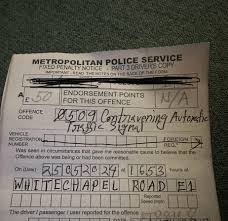 METROPOLITAN POLICE SERVICE
FIXED PENALTY NOTICE / PART 3 DRIVER'S COPY
IMPORTANT - READ THE NOTES ON THE BACK OF THE FORM
A £ 50 ENDORSEMENT POINTS FOR THIS OFFENCE N/A
OFFENCE CODE 0509 Contravening Automatic
Traffic Signal
VEHICLE REGISTRATION NUMBER FOREIGN REG.
Was seen in circumstances that gave the reasonable cause to believe that the
Offence above was being or had been committed.
On (date) 25052024 at 1653 hours
WHITECHAPEL ROAD E1
The driver / passenger / user reported for the offence